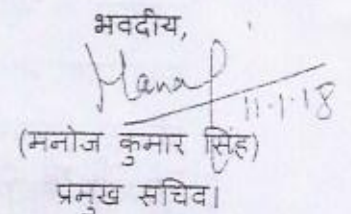 भवदीय,
Manoj
11-1-18
(मनोज कुमार सिंह)
प्रमुख सचिव।